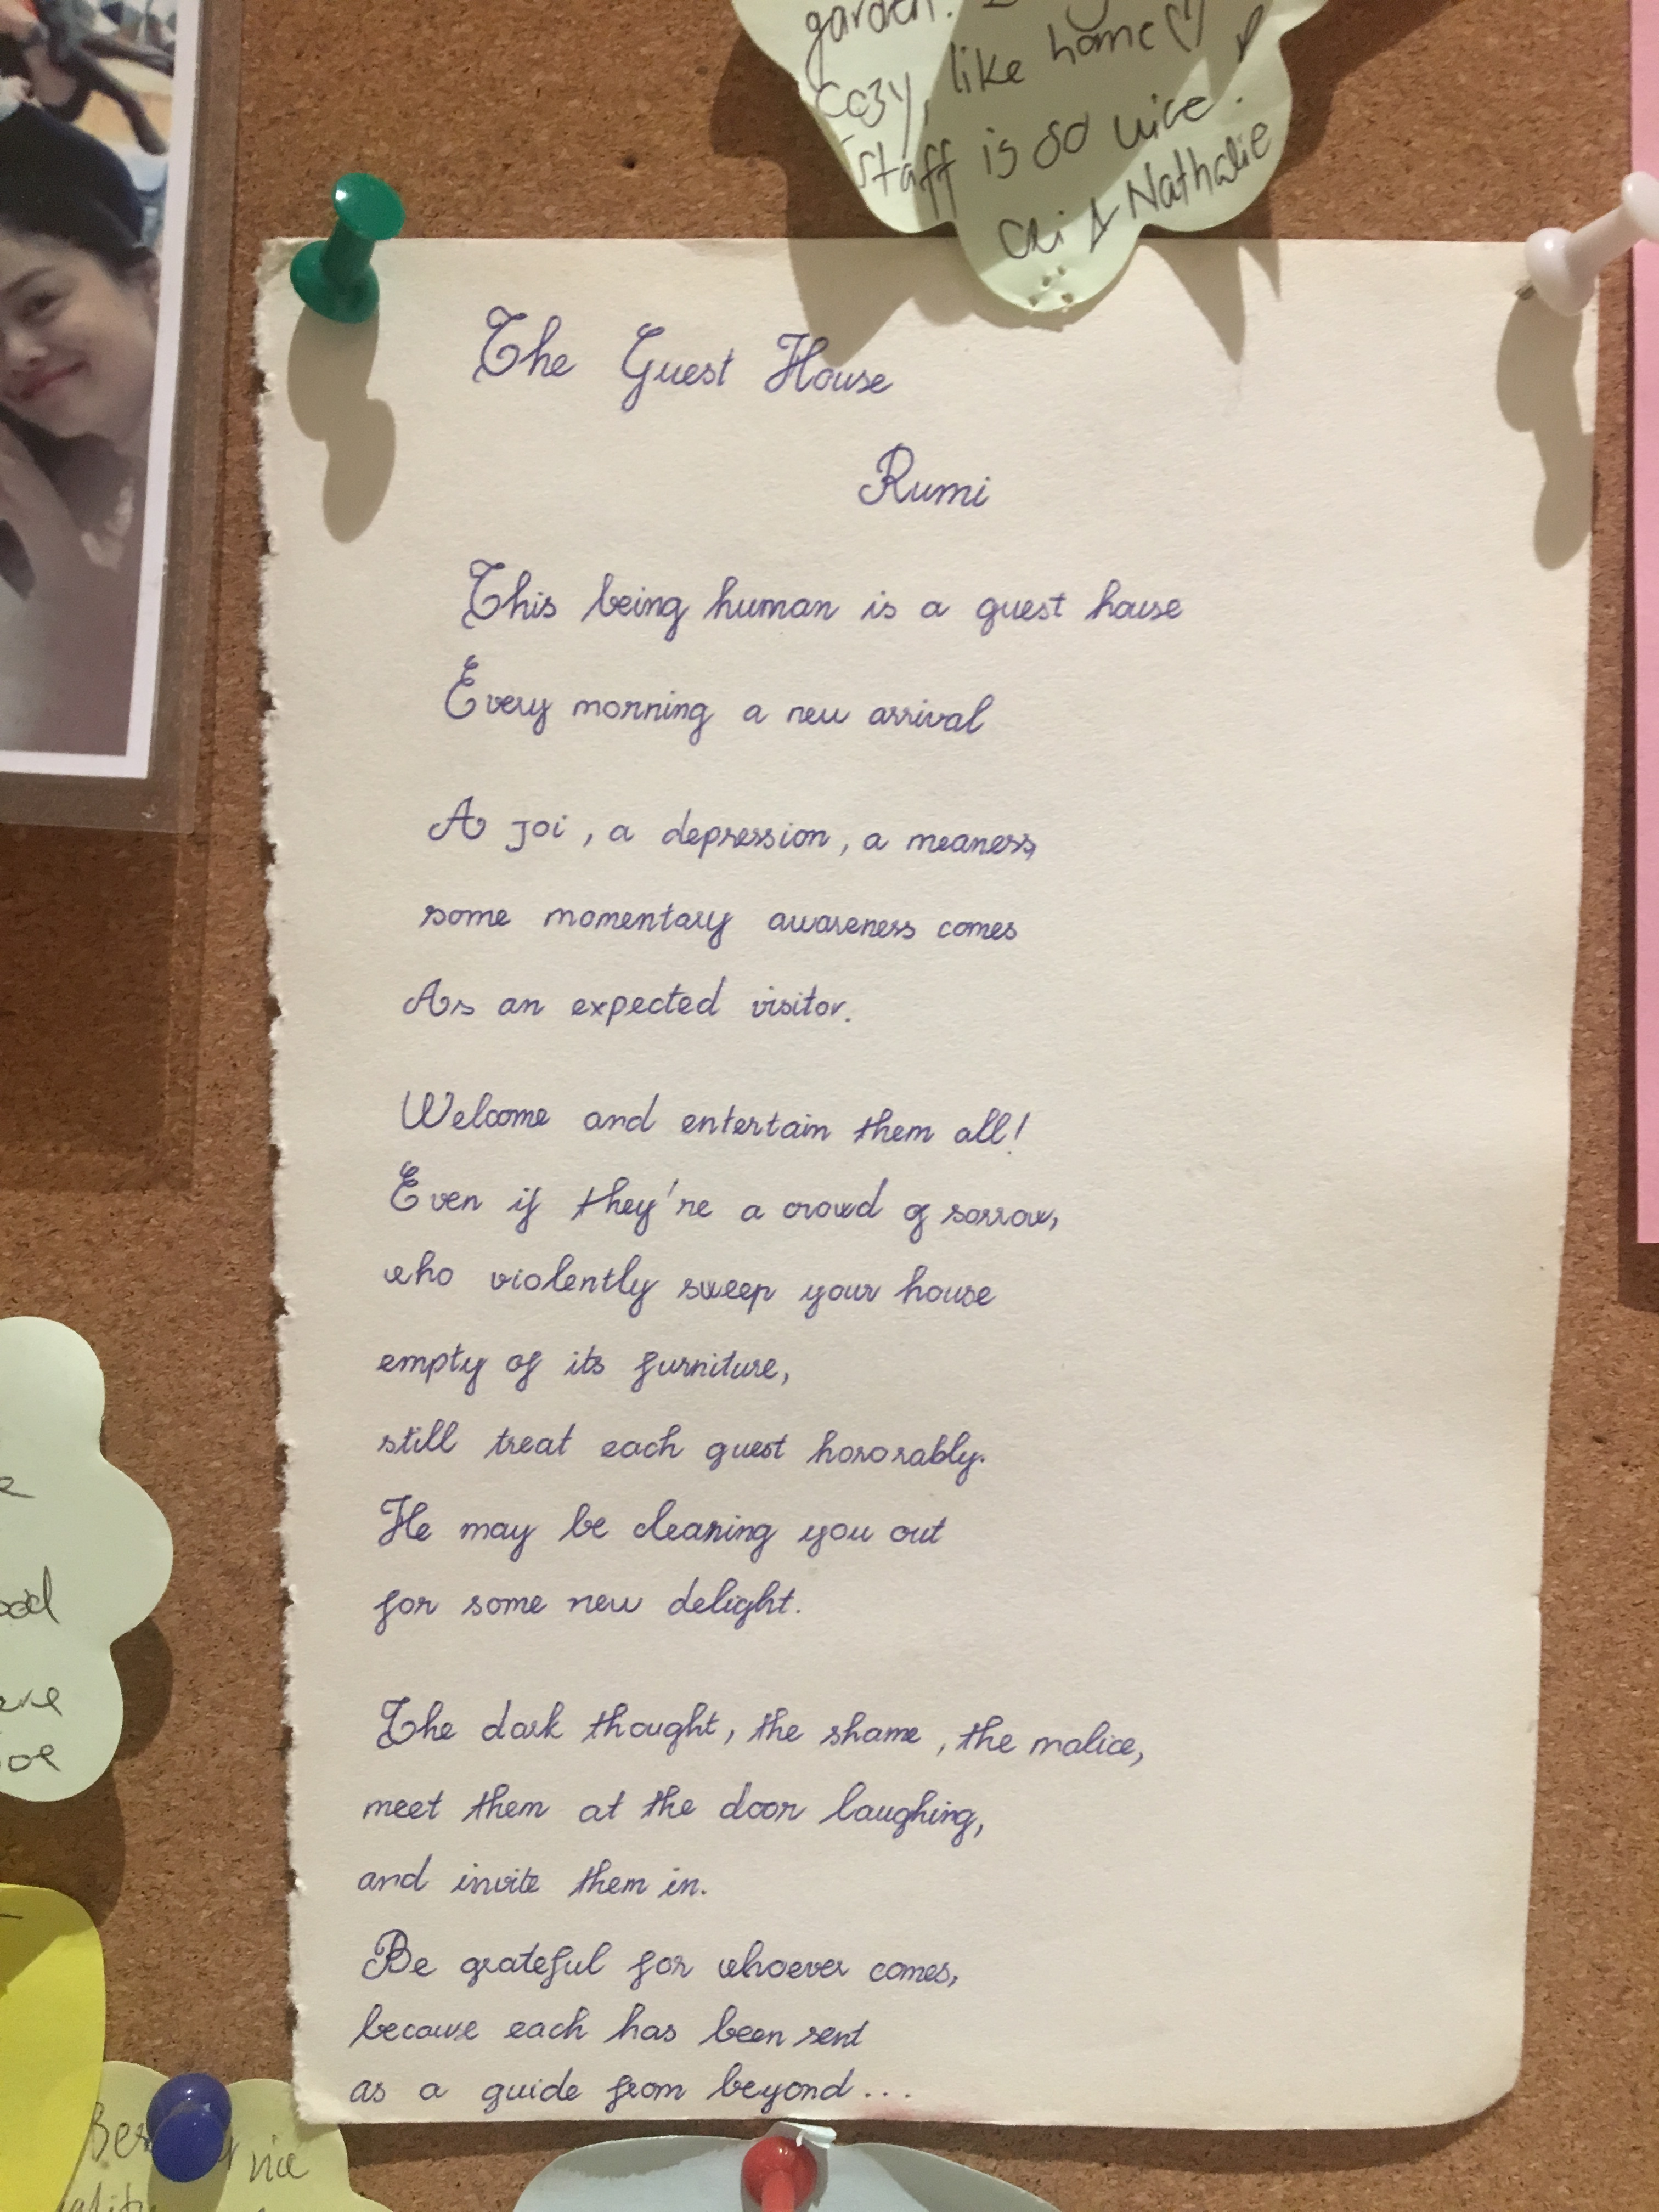 garden.
Cozy, like home♡
staff is so nice.
& Nathalie
The Guest House
Rumi
This being human is a guest house
Every morning a new arrival
A joi, a depression, a meaness,
some momentary awareness comes
As an expected visitor.
Welcome and entertain them all!
Even if they're a crowd of sorrow,
who violently sweep your house
empty of its furniture,
still treat each guest honorably.
He may be cleaning you out
for some new delight.
The dark thought, the shame, the malice,
meet them at the door laughing,
and invite them in.
Be grateful for whoever comes,
because each has been sent
as a guide from beyond...